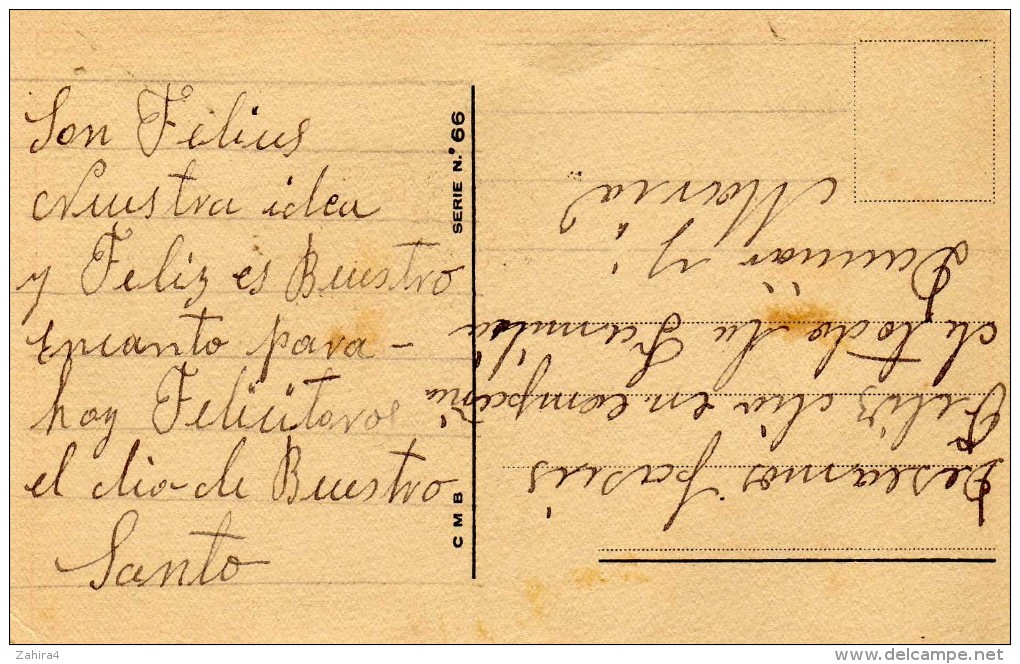 Son Felius
Nuestra idea
y Feliz es Buestro
Encanto para -
hoy Felicitaros
el dia de Buestro
Santo
SERIE N.º 66
C M B
Deseamos paseis
Feliz dia en compañia
de toda la Familia
y
Maria
Zahira4
delcampe.net